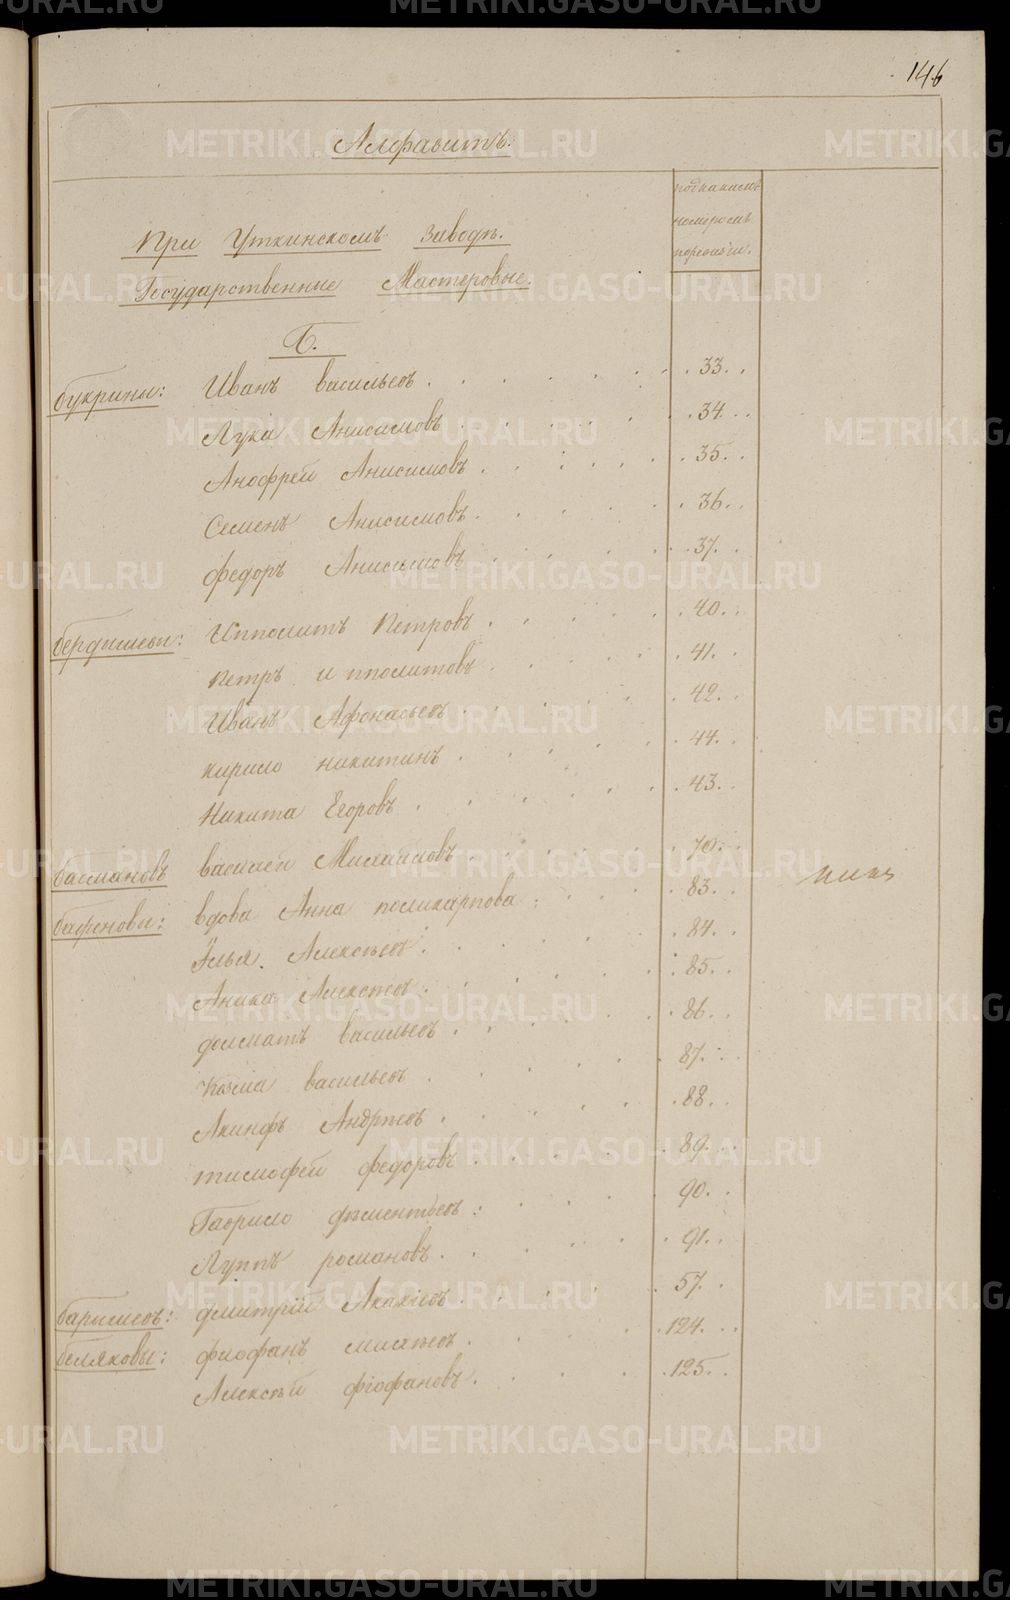 146
Алфавитъ.
подкакимъ
номеромъ
поревизiи.
При Уткинскомъ Заводѣ.
Государственные Мастеровые.
Б.
букрины: Иванъ васильевъ . . . . . . . . 33. .
Лука Анисимовъ . . . . . . 34. .
Анофрей Анисимовъ . . . . . . 35. .
Семенъ Анисимовъ . . . . . . 36. .
федоръ Анисимовъ . . . . . . 37. .
бердышевы: Ипполитъ Петровъ . . . . . . 40. .
Петръ ипполитовъ . . . . . . 41. .
Иванъ Афонасьевъ . . . . . . 42. .
кирило никитинъ . . . . . . 44. .
Никита Егоровъ . . . . . . 43. .
басмановъ василей Михайловъ . . . . . . 70. .
бафеновы: вдова Анна поликарпова . . . . 83. .
Илья Алексѣевъ . . . . . . 84. .
Аника Алексѣевъ . . . . . . 85. .
долматъ васильевъ . . . . . . 86. .
Козма васильевъ . . . . . . 87. .
Акинфъ Андрѣевъ . . . . . . 88. .
тимофей федоровъ . . . . . . 89. .
Гаврило дѣментьевъ . . . . . . 90. .
Луппъ романовъ . . . . . . 91. .
барышевъ: дмитрiй Акакiевъ . . . . . . 57. .
беляковы: фиофанъ . . . . . . 124. .
Алексѣй фiофановъ . . . . . . 125. .
METRIKI.GASO-URAL.RU